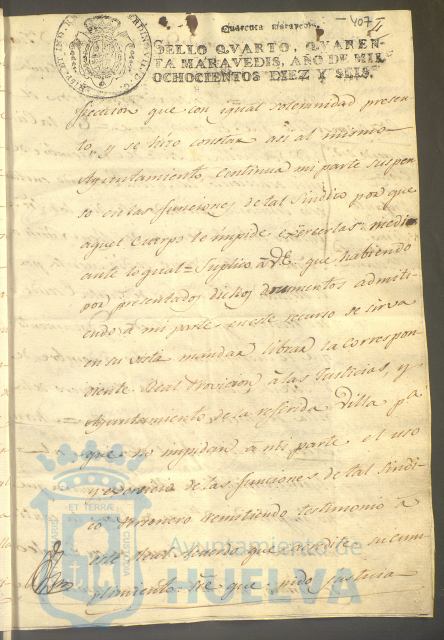 Quarenta maravedis.
407
SELLO QVARTO, QVAREN-
TA MARAVEDIS, AÑO DE MIL
OCHOCIENTOS DIEZ Y SEIS.
que con igual solemnidad presen-
to, y se hizo constar asi al mismo
Ayuntamiento, continua mi parte suspen
so en las funciones de tal Sindico por que
aquel Cuerpo le impide exercerlas: medi
ante lo qual = Suplico a V.E. que habiendo
por presentados dichos documentos admiti
endo á mi parte en este recurso se sirva
en su vista mandar librar la correspon
diente Real Provicion á las Justicias, y
Ayuntamiento de la referida Villa pa
que no impidan a mi parte el uso
y exercicio de las funciones de tal Sindi
co Personero remitiendo testimonio á
este Real Acuerdo que acredite su cum
plimiento que pido Justicia
Ayuntamiento de
HUELVA